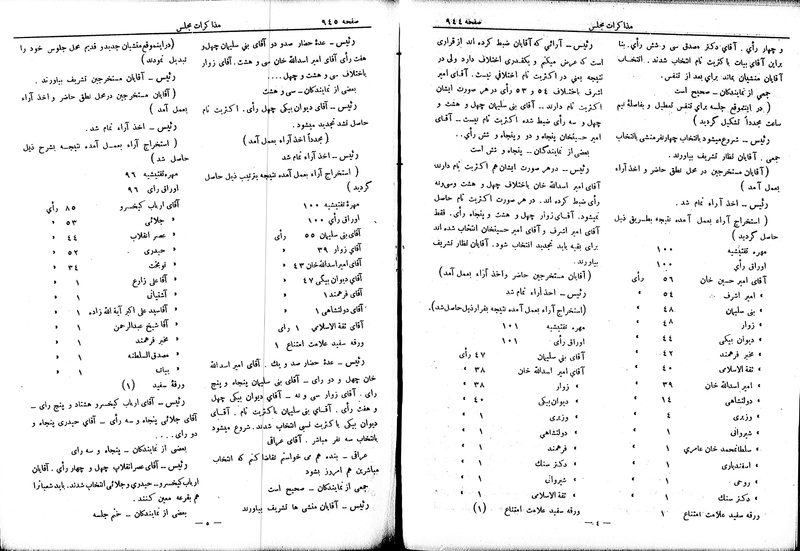 صفحه ٩٤٤
مذاکرات مجلس
و چهار رأی . آقای دکتر مصدق سی و شش رأی . بنا
براین آقای بیات با کثریت تام انتخاب شدند . انتخاب
آقایان منشیان بماند برای بعد از تنفس .
جمعی از نمایندگان ــ صحیح است
( در اینموقع جلسه برای تنفس تعطیل و بفاصلهٔ نیم
ساعت مجدداً تشکیل گردید )
رئیس ــ شروع میشود بانتخاب چهار نفر منشی بانتخاب
جمعی . آقایان نظار تشریف بیاورند .
(آقایان مستخرجین در محل نطق حاضر و اخذ آراء
بعمل آمد )
رئیس ــ اخذ آراء تمام شد .
( استخراج آراء بعمل آمده نتیجه بطریق ذیل
حاصل گردید )
مهره تفتیشیه ١٠٠
اوراق رأی ١٠٠
آقای امیر حسین خان ٥٦ رأی
» امیر اشرف ٥٤ »
» بنی سلیمان ٤٨ »
» زوار ٤٨ »
» دیوان بیگی ٤٤ »
» مخبر فرهمند ٤٢ »
» ثقة الاسلامی ٤٠ »
» امیر اسدالله خان ٣٩ »
» دولتشاهی ١٤ »
» وزیری ٤ »
» شیروانی ١ »
» سلطانمحمد خان عامری ١ »
» اسفندیاری ١ »
» روحی ١ »
» دکتر سنگ ١ »
ورقه سفید علامت امتناع ١
رئیس ــ آرائی که آقایان ضبط کرده اند از قراری
است که عرض میکنم و یکقدری اختلاف دارد ولی در
نتیجه یعنی در اکثریت تام اختلافی نیست . آقای امیر
اشرف باختلاف ٥٤ و ٥٣ رأی در هر صورت ایشان
اکثریت تام دارند ــ آقای بنی سلیمان چهل و هشت و
چهل و سه رأی ضبط شده اکثریت تام نیست ــ آقای
امیر حسینخان پنجاه و دو و پنجاه و شش رأی . .
بعضی از نمایندگان ــ پنجاه و شش است
رئیس ــ در هر صورت ایشان هم اکثریت تام دارند
آقای امیر اسدالله خان باختلاف چهل و هشت و سی و نه
رأی ضبط کرده اند . در هر صورت اکثریت تام حاصل
نمیشود . آقای زوار چهل و هشت و پنجاه رأی . فقط
آقای امیر اشرف و آقای امیر حسینخان انتخاب شده اند
برای بقیه باید تجدید انتخاب شود . آقایان نظار تشریف
بیاورند .
( آقایان مستخرجین حاضر و اخذ آراء بعمل آمد )
رئیس ــ اخذ آراء تمام شد
(استخراج آراء بعمل آمده نتیجه بقرار ذیل حاصل شد) .
مهره تفتیشیه ١٠١
اوراق رأی ١٠١
آقای بنی سلیمان ٤٧ رأی
آقای امیر اسدالله خان ٣٨ »
» زوار ٣٨ »
» دیوان بیگی ٤٠ »
» وزیری ١ »
» دولتشاهی ١ »
» فرهمند ١ »
» دکتر سنگ ١ »
» شیروانی ١ »
» ثقة الاسلامی ١ »
ورقه سفید علامت امتناع (١)
ــ ٤ ــ
صفحه ٩٤٥
مذاکرات مجلس
رئیس ــ عدهٔ حضار صد و دو آقای بنی سلیمان چهل و
هفت رأی آقای امیر اسدالله خان سی و هشت . آقای زوار
باختلاف سی و هشت و چهل . . . .
بعضی از نمایندگان ــ سی و هشت
رئیس ــ آقای دیوان بیگی چهل رأی . اکثریت تام
حاصل نشد تجدید میشود .
( مجدداً اخذ آراء بعمل آمد )
رئیس ــ اخذ آراء تمام شد
( استخراج آراء بعمل آمده نتیجه بترتیب ذیل حاصل
گردید )
مهرهٔ تفتیشیه ١٠٠
اوراق رأی ١٠٠
آقای بنی سلیمان ٥٥ رأی
آقای زوار ٣٩ »
آقای امیر اسدالله خان ٤٣ »
آقای دیوان بیگی ٤٧ »
آقای فرهمند ١ »
آقای دولتشاهی ١ »
آقای ثقة الاسلامی ١ رای
ورقه سفید علامت امتناع ١
رئیس ــ عدهٔ حضار صد و یک . آقای امیر اسدالله
خان چهل و دو رای ــ آقای بنی سلیمان پنجاه و پنج
رای . آقای زوار سی و نه ــ آقای دیوان بیگی چهل
و هفت رأی . آقای بنی سلیمان باکثریت تام . آقای
دیوان بیگی باکثریت نسبی انتخاب شدند . شروع میشود
بانتخاب سه نفر مباشر . آقای عراقی
عراقی ــ بنده هم می خواستم تقاضا کنم که انتخاب
مباشرین هم امروز بشود
جمعی از نمایندگان ــ صحیح است
رئیس ــ آقایان منشی ها تشریف بیاورند
(در اینموقع منشیان جدید و قدیم محل جلوس خود را
تبدیل نمودند )
رئیس ــ آقایان مستخرجین تشریف بیاورند .
(آقایان مستخرجین در محل نطق حاضر و اخذ آراء
بعمل آمد )
رئیس ــ اخذ آراء تمام شد .
( استخراج آراء بعمل آمده نتیجه بشرح ذیل
حاصل شد )
مهرهٔ تفتیشیه ٩٦
اوراق رای ٩٦
آقای ارباب کیخسرو ٨٥ رأی
» جلائی ٥٣ »
» عصر انقلاب ٤٤ »
» حیدری ٥٢ »
» نوبخت ٣٤ »
» آقا علی زارع ١ »
» آشتیانی ١ »
» آقا سید علی اکبر آیة الله زاده ١ »
» آقا شیخ عبدالرحمن ١ »
» مخبر فرهمند ١ »
» مصدق السلطنه ١ »
» بیات ١ »
ورقهٔ سفید (١)
رئیس ــ آقای ارباب کیخسرو هشتاد و پنج رای ــ
آقای جلائی پنجاه و سه رأی ــ آقای حیدری پنجاه و
دو رای . . . .
بعضی از نمایندگان ــ پنجاه و سه رای
رئیس ــ آقای عصر انقلاب چهل و چهار رأی . آقایان
ارباب کیخسرو ــ حیدری و جلائی انتخاب شدند . باید شعبات را
هم بقرعه معین کنند .
بعضی از نمایندگان ــ ختم جلسه
ــ ٥ ــ